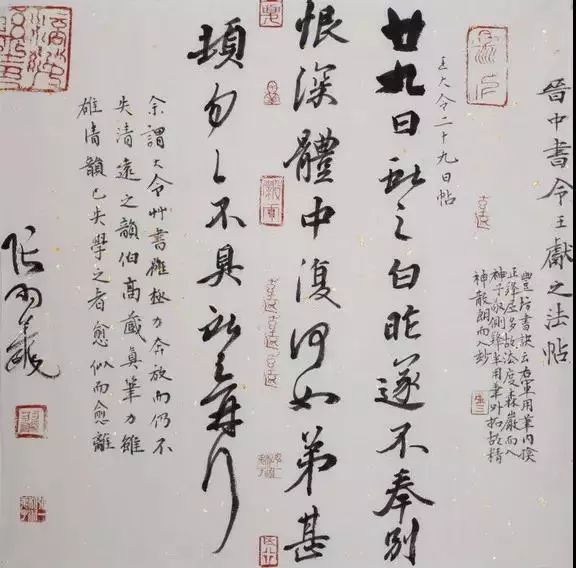 晉中書令王獻之法帖
豐坊書訣云右軍用筆内擫
正鋒居多故法度森嚴而入
神子敬側鋒半用筆外拓故精
神散朗而入妙
王大令二十九日帖
廿九日獻之白昨遂不奉別
恨深體中復何如弟甚
頓匆々不具獻之再拜
余謂大令艸書雖極力奔放而仍不
失清遠之韻伯高藏真筆力雖
雄清韻已失學之者愈似而愈離